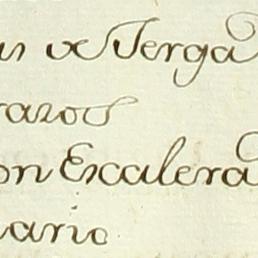 de Jerga
razos
on Escalera
uario